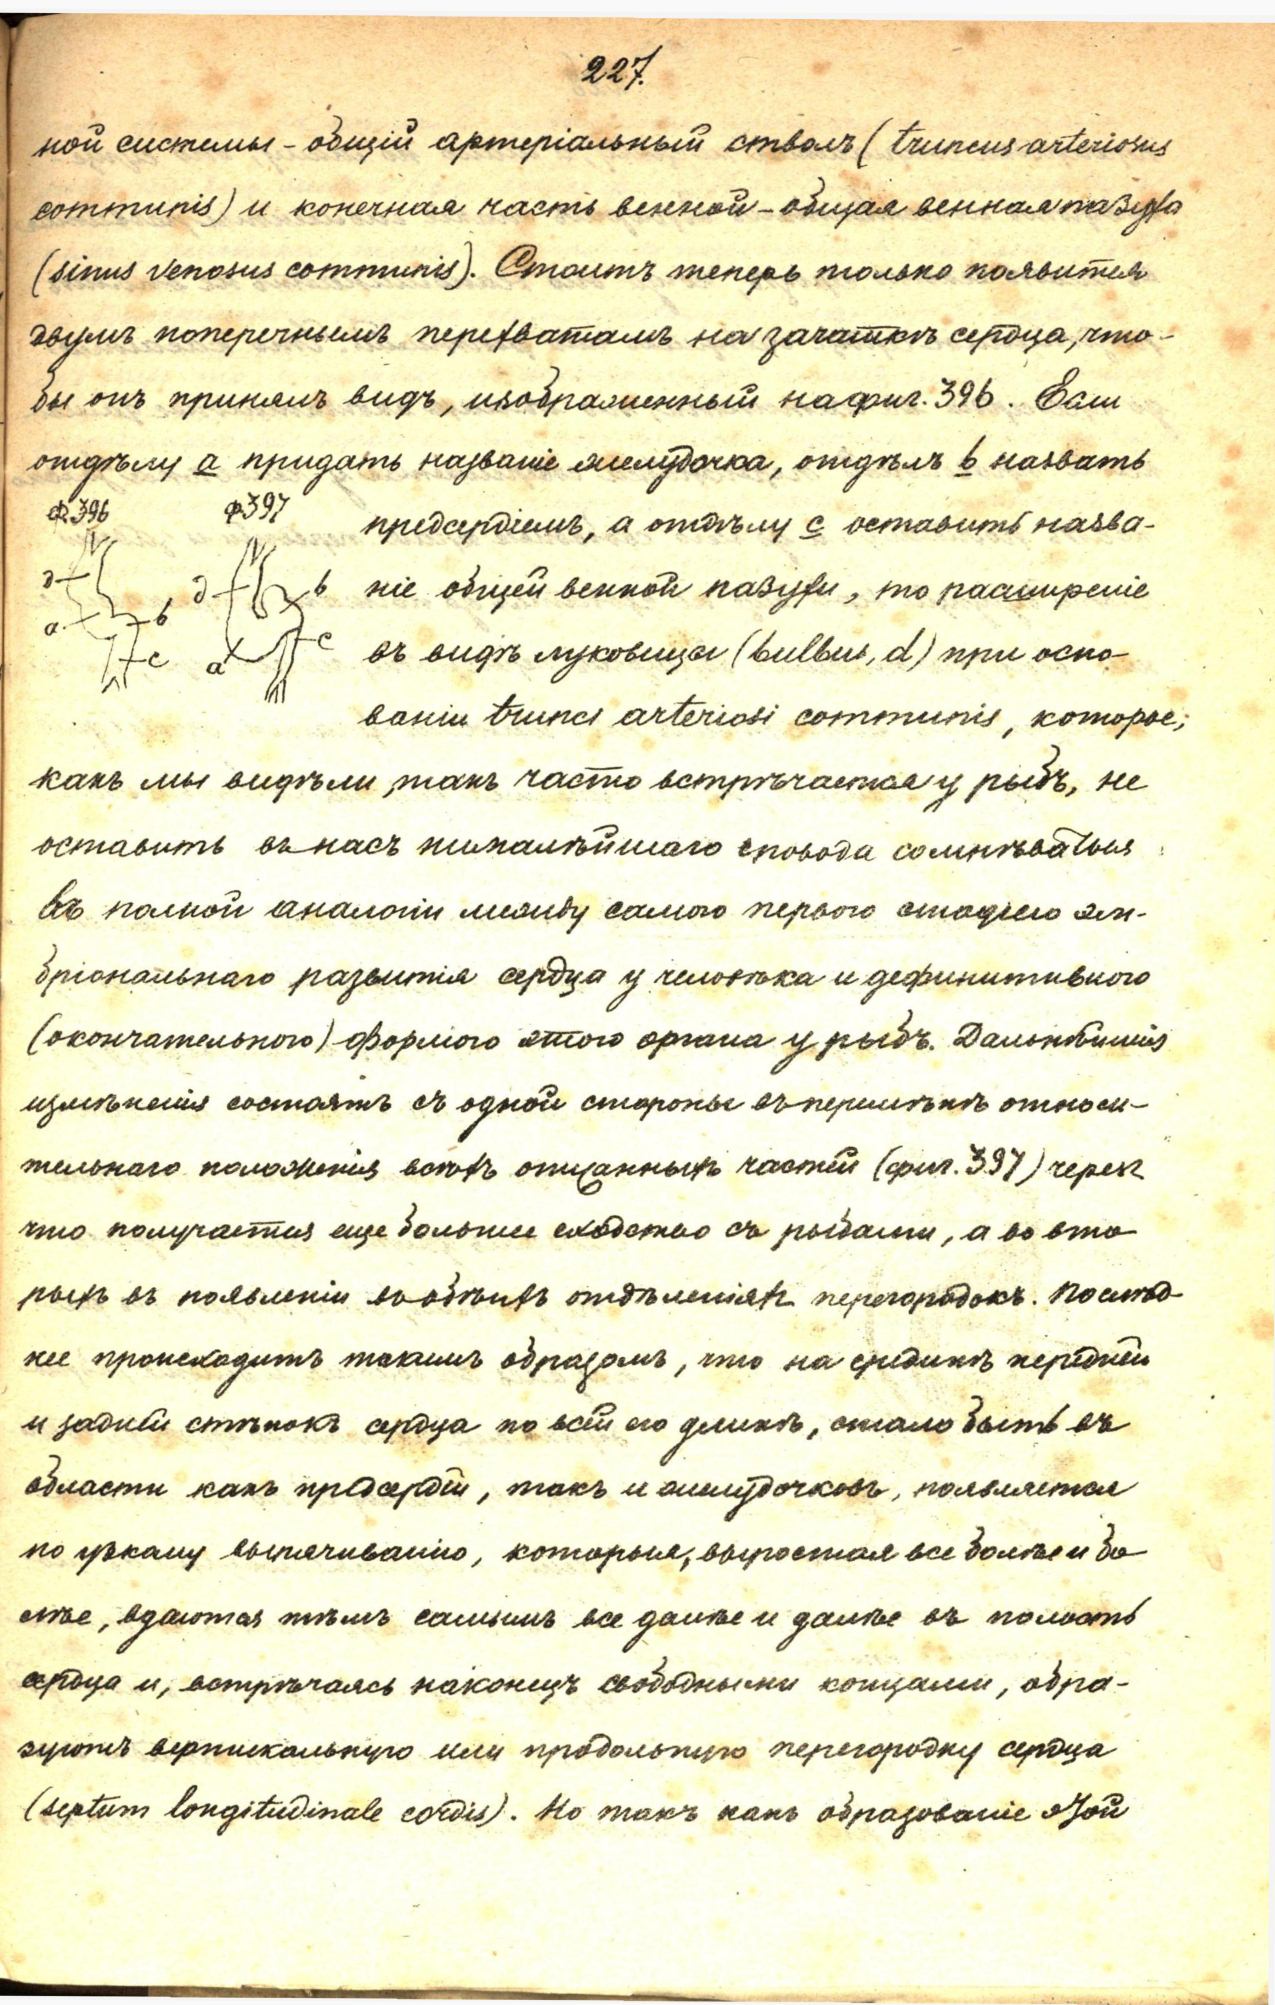 227.
ной системы – общій артеріальный стволъ (truncus arteriosus
communis) и конечная часть венной – общая венная пазуха
(sinus venosus communis). Стоитъ теперь только появится
двумъ поперечнымъ перехватамъ на зачаткѣ сердца, что-
бы онъ принялъ видъ, изображенный на фиг. 396. Если
отдѣлу a придать названіе желудочка, отдѣлъ b назвать
Ф. 396 Ф 397
предсердіемъ, а отдѣлу c оставить назва-
ніе общей венной пазухи, то расширеніе
въ видѣ луковицы (bulbus, d) при осно-
ваніи trunci arteriosi communis, которое,
д a b c
д b a c
какъ мы видѣли, такъ часто встрѣчается у рыбъ, не
оставитъ въ насъ ни малѣйшаго повода сомнѣваться
въ полной аналогіи между самою первою стадіею эм-
бріональнаго развитія сердца у человѣка и дефинитивною
(окончательною) формою этого органа у рыбъ. Дальнѣйшія
измѣненія состоятъ съ одной стороны въ перемѣнѣ относи-
тельнаго положенія всѣхъ описанныхъ частей (фиг. 397) черезъ
что получается еще большее сходство съ рыбами, а во вто-
рыхъ въ появленіи въ обѣихъ отдѣленіяхъ перегородокъ. Послѣд-
нее происходитъ такимъ образомъ, что на срединѣ передней
и задней стѣнокъ сердца по всей его длинѣ, стало быть въ
области какъ предсердій, такъ и желудочковъ, появляется
по узкому выпячиванію, которыя, выростая все болѣе и бо-
лѣе, вдаются тѣмъ самымъ все далѣе и далѣе въ полость
сердца и, встрѣчаясь наконецъ свободными концами, обра-
зуютъ вертикальную или продольную перегородку сердца
(septum longitudinale cordis). Но такъ какъ образованіе этой